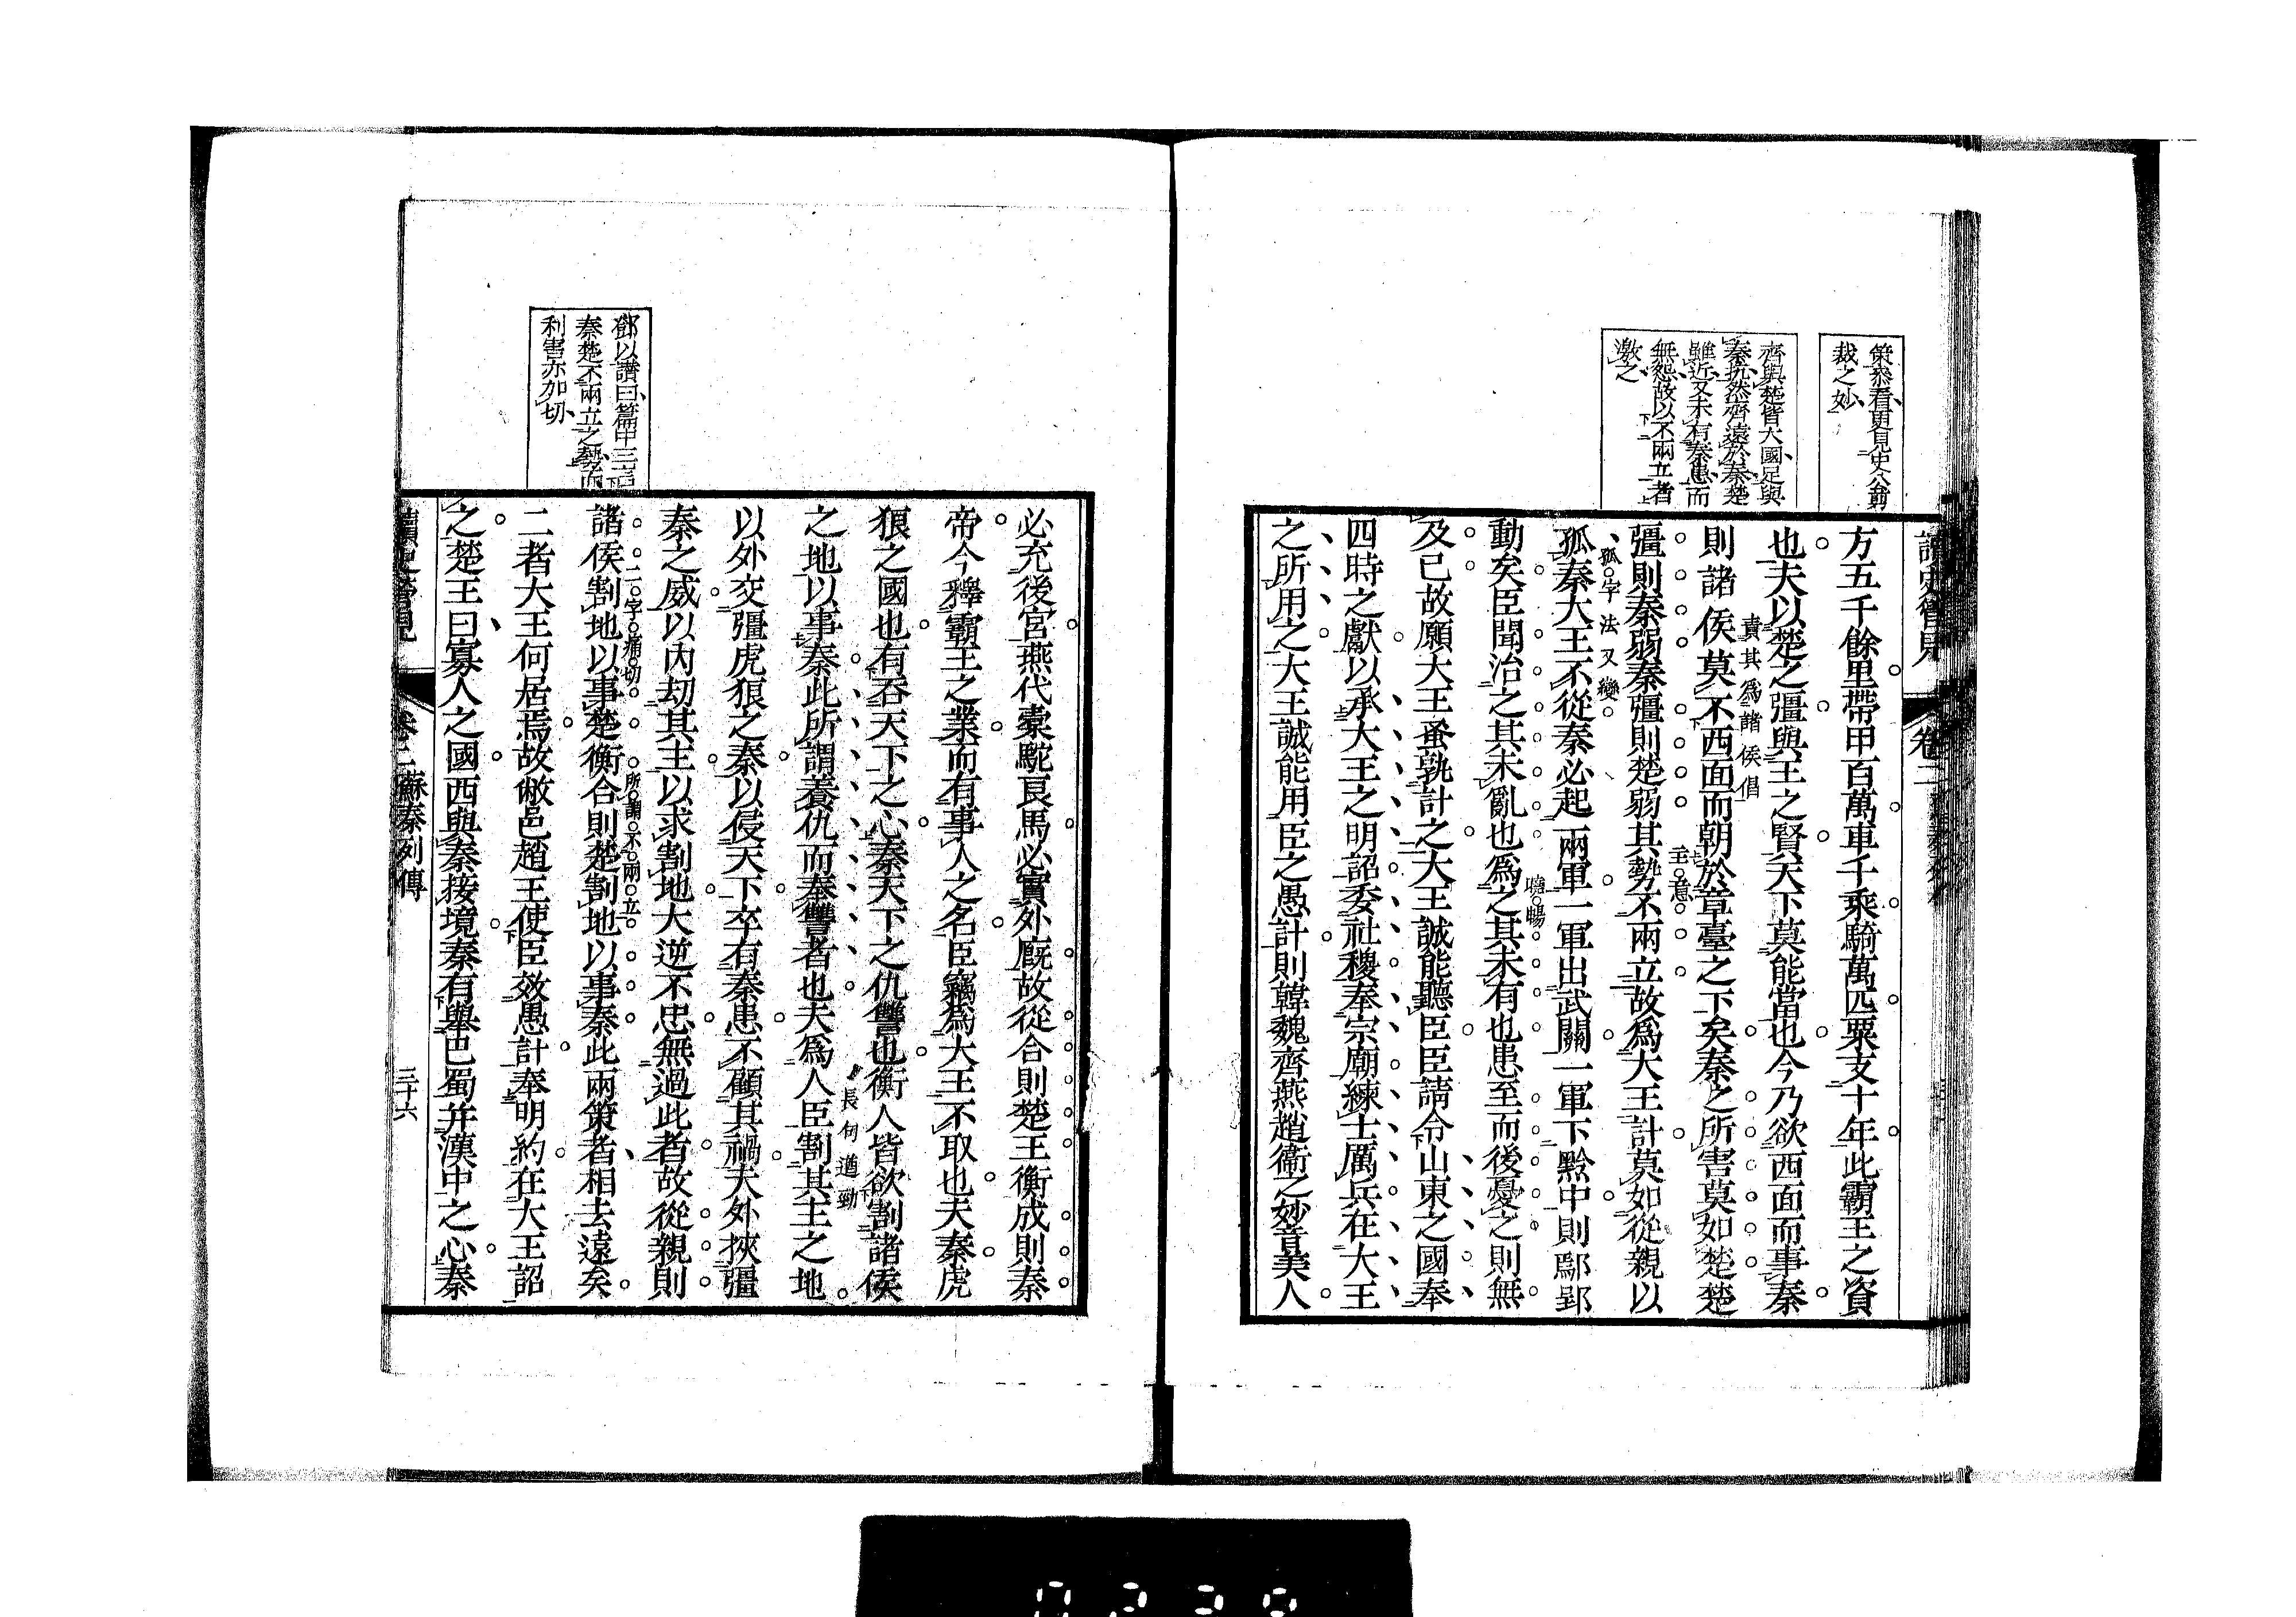 策參看更見史公剪
裁之妙
齊與楚皆大國足與
秦抗然齊遠於秦楚
雖近又未有秦患而
無怨故以不兩立者
激之
讀史管見
卷二
方五千餘里帶甲百萬車千乘騎萬匹粟支十年此霸王之資
也夫以楚之彊與王之賢天下莫能當也今乃欲西面而事秦
責其爲諸侯倡
則諸侯莫不西面而朝於章臺之下矣秦之所害莫如楚楚
主意
彊則秦弱秦彊則楚弱其勢不兩立故爲大王計莫如從親以
孤字法又變
孤秦大王不從秦必起兩軍一軍出武關一軍下黔中則鄢郢
曉暢
動矣臣聞治之其未亂也爲之其未有也患至而後憂之則無
及已故願大王蚤孰計之大王誠能聽臣臣請令山東之國奉
四時之獻以承大王之明詔委社稷奉宗廟練士厲兵在大王
之所用之大王誠能用臣之愚計則韓魏齊燕趙衞之妙音美人
鄧以讃曰篇中三言
秦楚不兩立之勢而
利害亦加切
必充後宮燕代橐駝良馬必實外廐故從合則楚王衡成則秦
帝今釋霸王之業而有事人之名臣竊爲大王不取也夫秦虎
狼之國也有吞天下之心秦天下之仇讐也衡人皆欲割諸侯
長句遒勁
之地以事秦此所謂養仇而奉讐者也夫爲人臣割其主之地
以外交彊虎狼之秦以侵天下卒有秦患不顧其禍夫外挾彊
秦之威以內劫其主以求割地大逆不忠無過此者故從親則
二字痛切
所謂不兩立
諸侯割地以事楚衡合則楚割地以事秦此兩策者相去遠矣
二者大王何居焉故敝邑趙王使臣效愚計奉明約在大王詔
之楚王曰寡人之國西與秦接境秦有舉巴蜀并漢中之心秦
讀史管見
卷二
蘇秦列傳
三十六